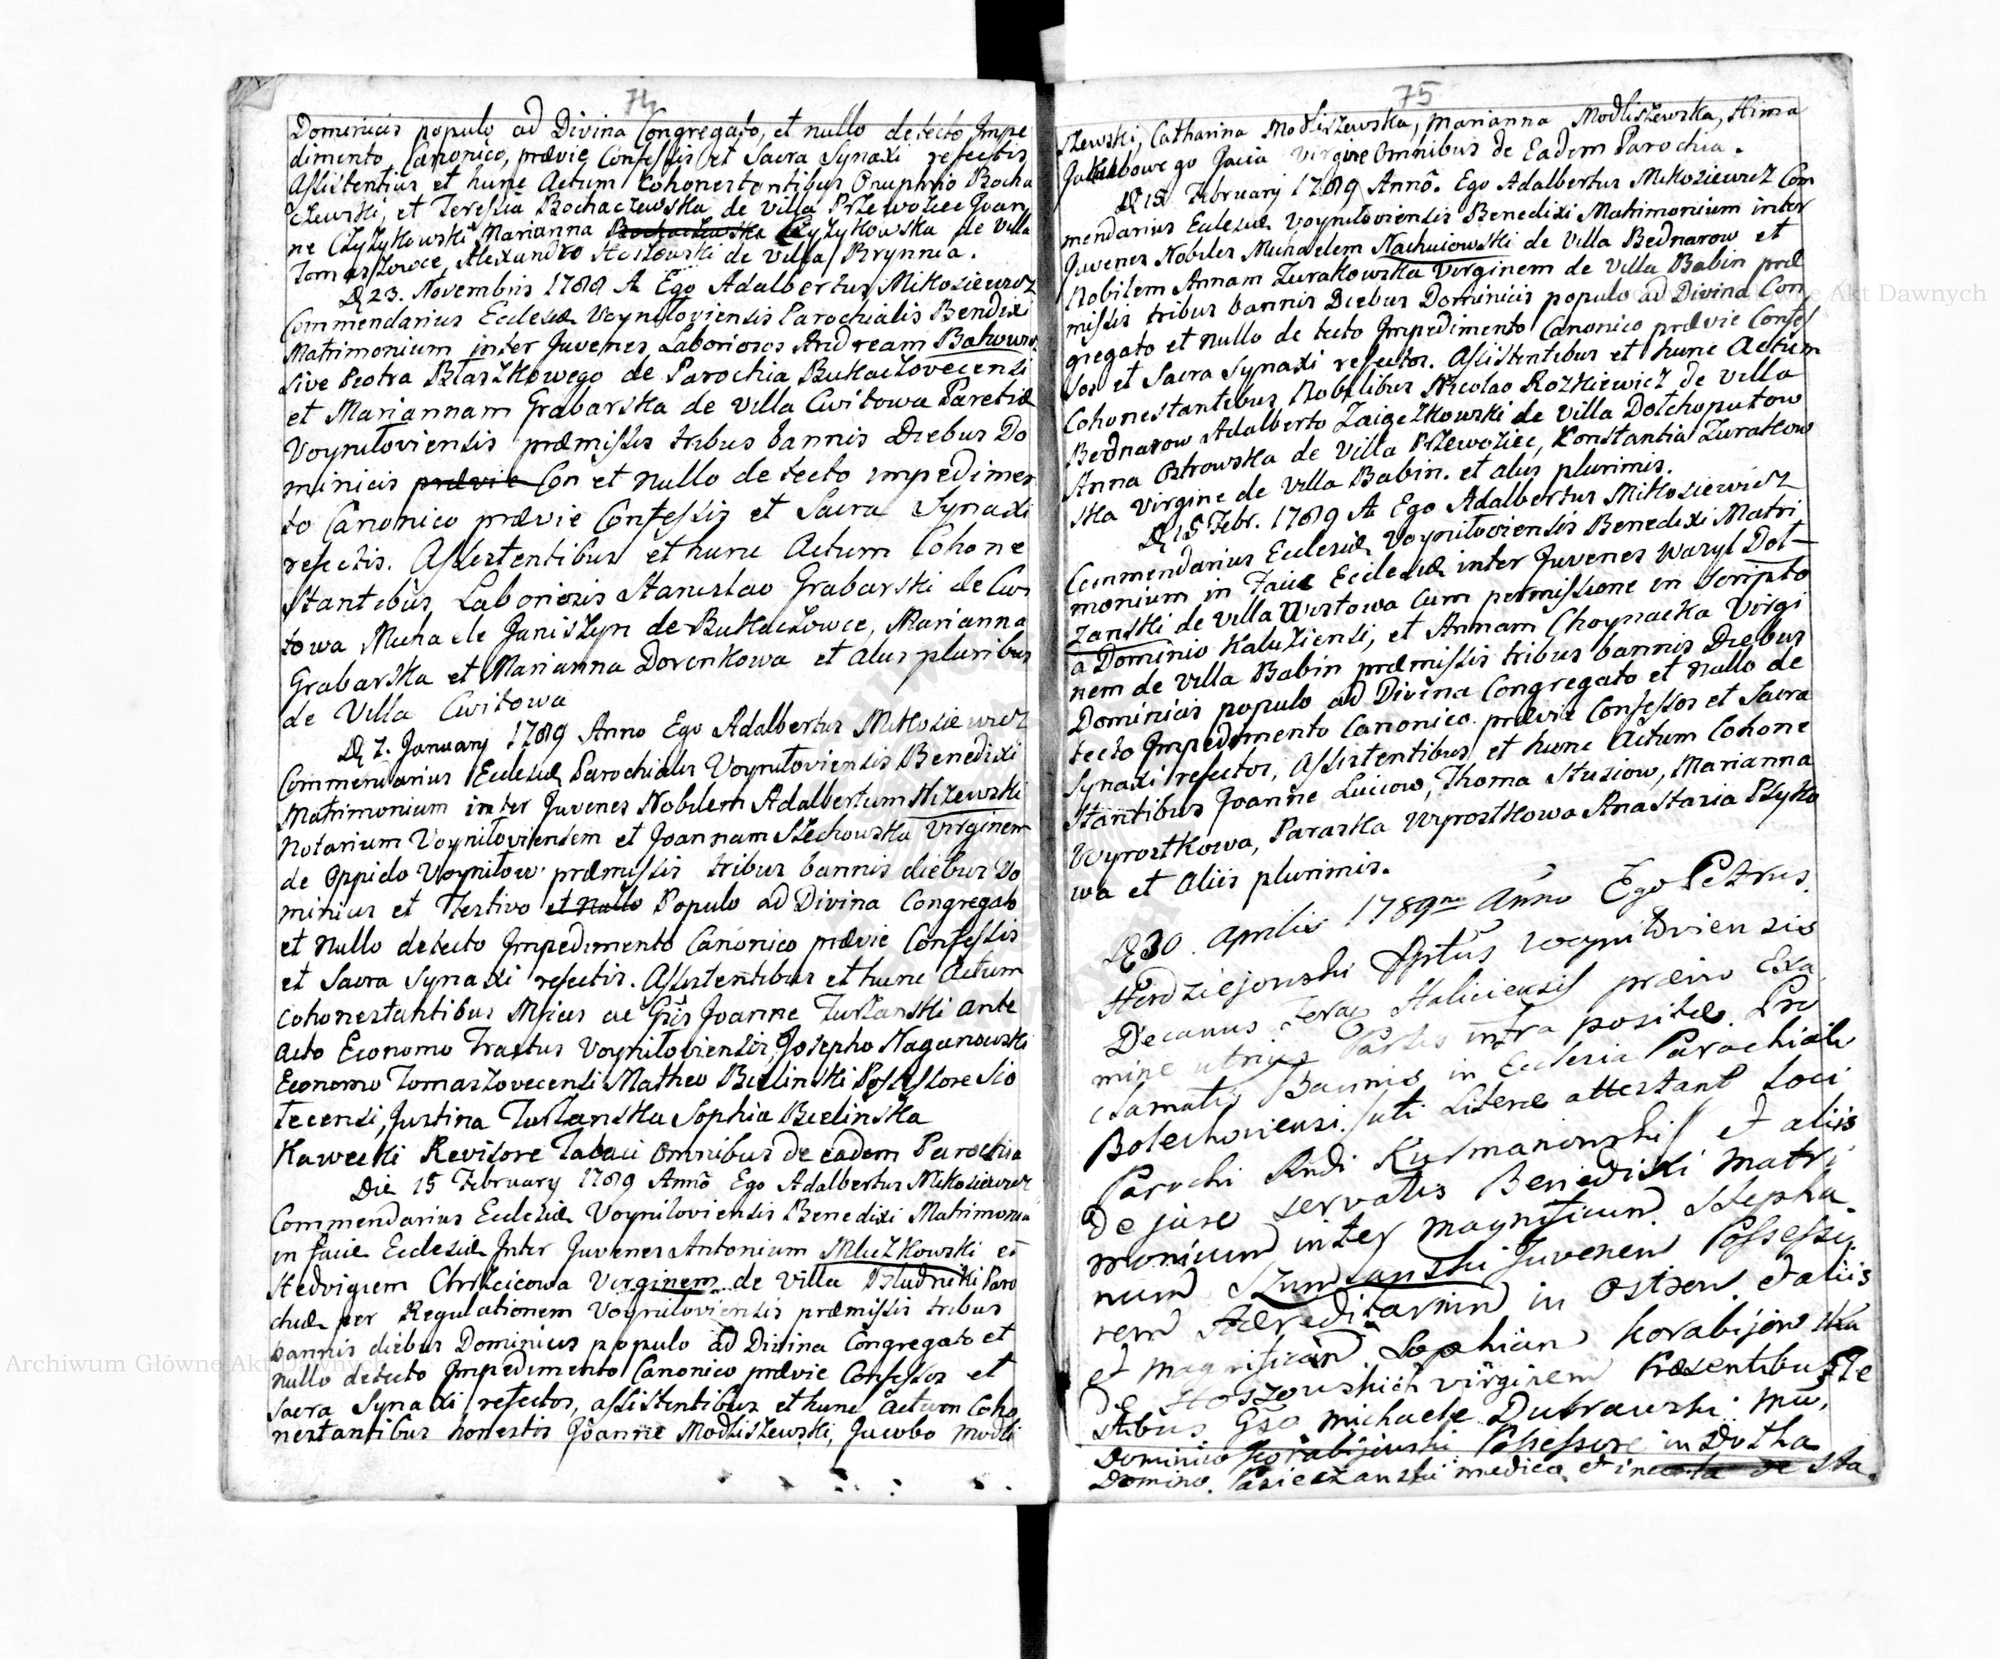 74
Dominicis populo ad Divina Congregato, et nullo detecto Impe
dimento Canonico, prævie Confessis et Sacra Synaxi refectis
Assistentius et hunc Actum Cohonestantibus Onuphrio Bocha
czewski, et Teressia Bochaczewska de Villa Przewoziec Joan
ne Czyzykowski Marianna Bochaczewska Czyzykowska de Villa
Tomaszowce, Alexandro de Villa Brynnia.
D 23. Novembris 1788 A Ego Adalbertus Mikosiewicz
Commendarius Ecclesiæ Voyniloviensis Parochialis Bendixi
Matrimonium inter Juvenes Laboriosos Andream
sive Piotra Blaszkowego de Parochia Bukaczovecensi
et Mariannam Grabarska de Villa Cwitowa Paretiæ
Voyniloviensis præmissis tribus bannis Diebus Do
minicis prævie Con et nullo detecto impedimen
to Canonico prævie Confessis et Sacra Synaxi
refectis. Assistentibus et hunc Actum Cohone
stantibus, Laboriosis Stanislao Grabarski de Cwi
towa Michaele Janiszyn de Bukaczowce, Marianna
Grabarska et Marianna Dorenkowa et aliis pluribus
de Villa Cwitowa
D 7. January 1789 Anno Ego Adalbertus Mikosiewicz
Commendarius Ecclesiæ Parochialis Voyniloviensis Benedixi
Matrimonium inter Juvenes Nobilem Adalbertum Nizewski
Notarium Voyniloviensem et Joannam Szechowska Virginem
de Oppido Voynilow præmissis tribus bannis diebus Do
minicis et Festivo et nullo Populo ad Divina Congregato
et nullo detecto Impedimento Canonico prævie Confessis
et Sacra Synaxi refectis. Assistentibus et hunc Actum
cohonestantibus Mficis ac Gsis Joanne Turzanski ante
acto Economo Tractus Voyniloviensis, Josepho Naganowski
Economo Tomaszovecensi Matheo Bielinski Possessore Sio
tecensi, Justina Turzanska Sophia Bielinska
Kawecki Revisore Tabaci omnibus de eadem Parochia
Die 15 February 1789 Anno Ego Adalbertus Mikosiewicz
Commendarius Ecclesiæ Voyniloviensis Benedixi Matrimonium
in facie Ecclesiæ Inter Juvenes Antonium Mluzkowski et
Hedvigiem Chrzcicowa Virginem de Villa Bludniki Paro
chiæ per Regulationem Voyniloviensis præmissis tribus
bannis diebus Dominicis populo ad Divina Congregato et
nullo detecto Impedimento Canonico prævie Confessos et
Sacra Synaxi refectos, assistentibus et hunc actum Coho
nestantibus honestis Joanne Modliszewski, Jacobo Modli
75
szewski, Catharina Modliszewska, Marianna Modliszewska, Hima
Jakubowego Jacia virgine Omnibus de Eadem Parochia.
D 15 February 1789 Anno. Ego Adalbertus Mikosiewicz Com
mendarius Ecclesiæ Voyniloviensis Benedixi Matrimonium inter
Juvenes Nobiles Michaelem Nachuiowski de Villa Bednarow et
Nobilem Annam Zurakowska Virginem de Villa Babin præ
missis tribus bannis Diebus Dominicis populo ad Divina Con
gregato et nullo detecto Impedimento Canonico prævie Confes
sos et Sacra Synaxi refectos. Assistentibus et hunc Actum
Cohonestantibus Nobilibus Nicolao Rozkiewicz de Villa
Bednarow Adalberto de Villa Dolchoputow
Anna Ostrowska de Villa Przewoziec, Konstantia Zurakow
ska Virgine de Villa Babin. et aliis plurimis.
D 15 Febr. 1789 A Ego Adalbertus Mikosiewicz
Commendarius Ecclesiæ Voyniloviensis Benedixi Matri
monium in Facie Ecclesiæ inter Juvenes Wazyl Dol
zanski de Villa Wistowa Cum permissione in scripto
a Dominio Kaluziensi, et Annam Choynacka Virgi
nem de Villa Babin præmissis tribus bannis Diebus
Dominicis populo ad Divina Congregato et nullo de
tecto Impedimento Canonico prævie Confessos et Sacra
Synaxi refectos, Assistentibus et hunc Actum Cohone
stantibus Joanne Luciow, Thoma Stusiow, Marianna
Wyrostkowa, Paraska Wyrostkowa Anastazia Pzyko
wa et Aliis plurimis.
D 30. Aprilis 1789no Anno Ego Petrus
Hordziejowski Pptus Woyniloviensis
Decanus Foraneus Haliciensis prævio Exa
mine utriusq Partis infra positæ. Pro
clamatis Bannis in Ecclesia Parochiali
Bolechoviensi. uti Literæ attestant Loci
Parochi Rndi Kurmanowski et aliis
de jure servatis Benedixi Matri
monium inter Magnificum Stepha
num Szumlanski Juvenem Possesso
rem Hæreditarium in Ostrow. et aliis
et Magnificam Sophiam Korabijowska
De Hoszowskich virginem Præsentibus Te
stibus Gso Michaele Dubrawski. M
Dominico Korabijowski Possessore in Dutha
Domino. Pasieczanski medico et inco de Sta
Archiwum Główne Akt Dawnych
Główne Akt Dawnych